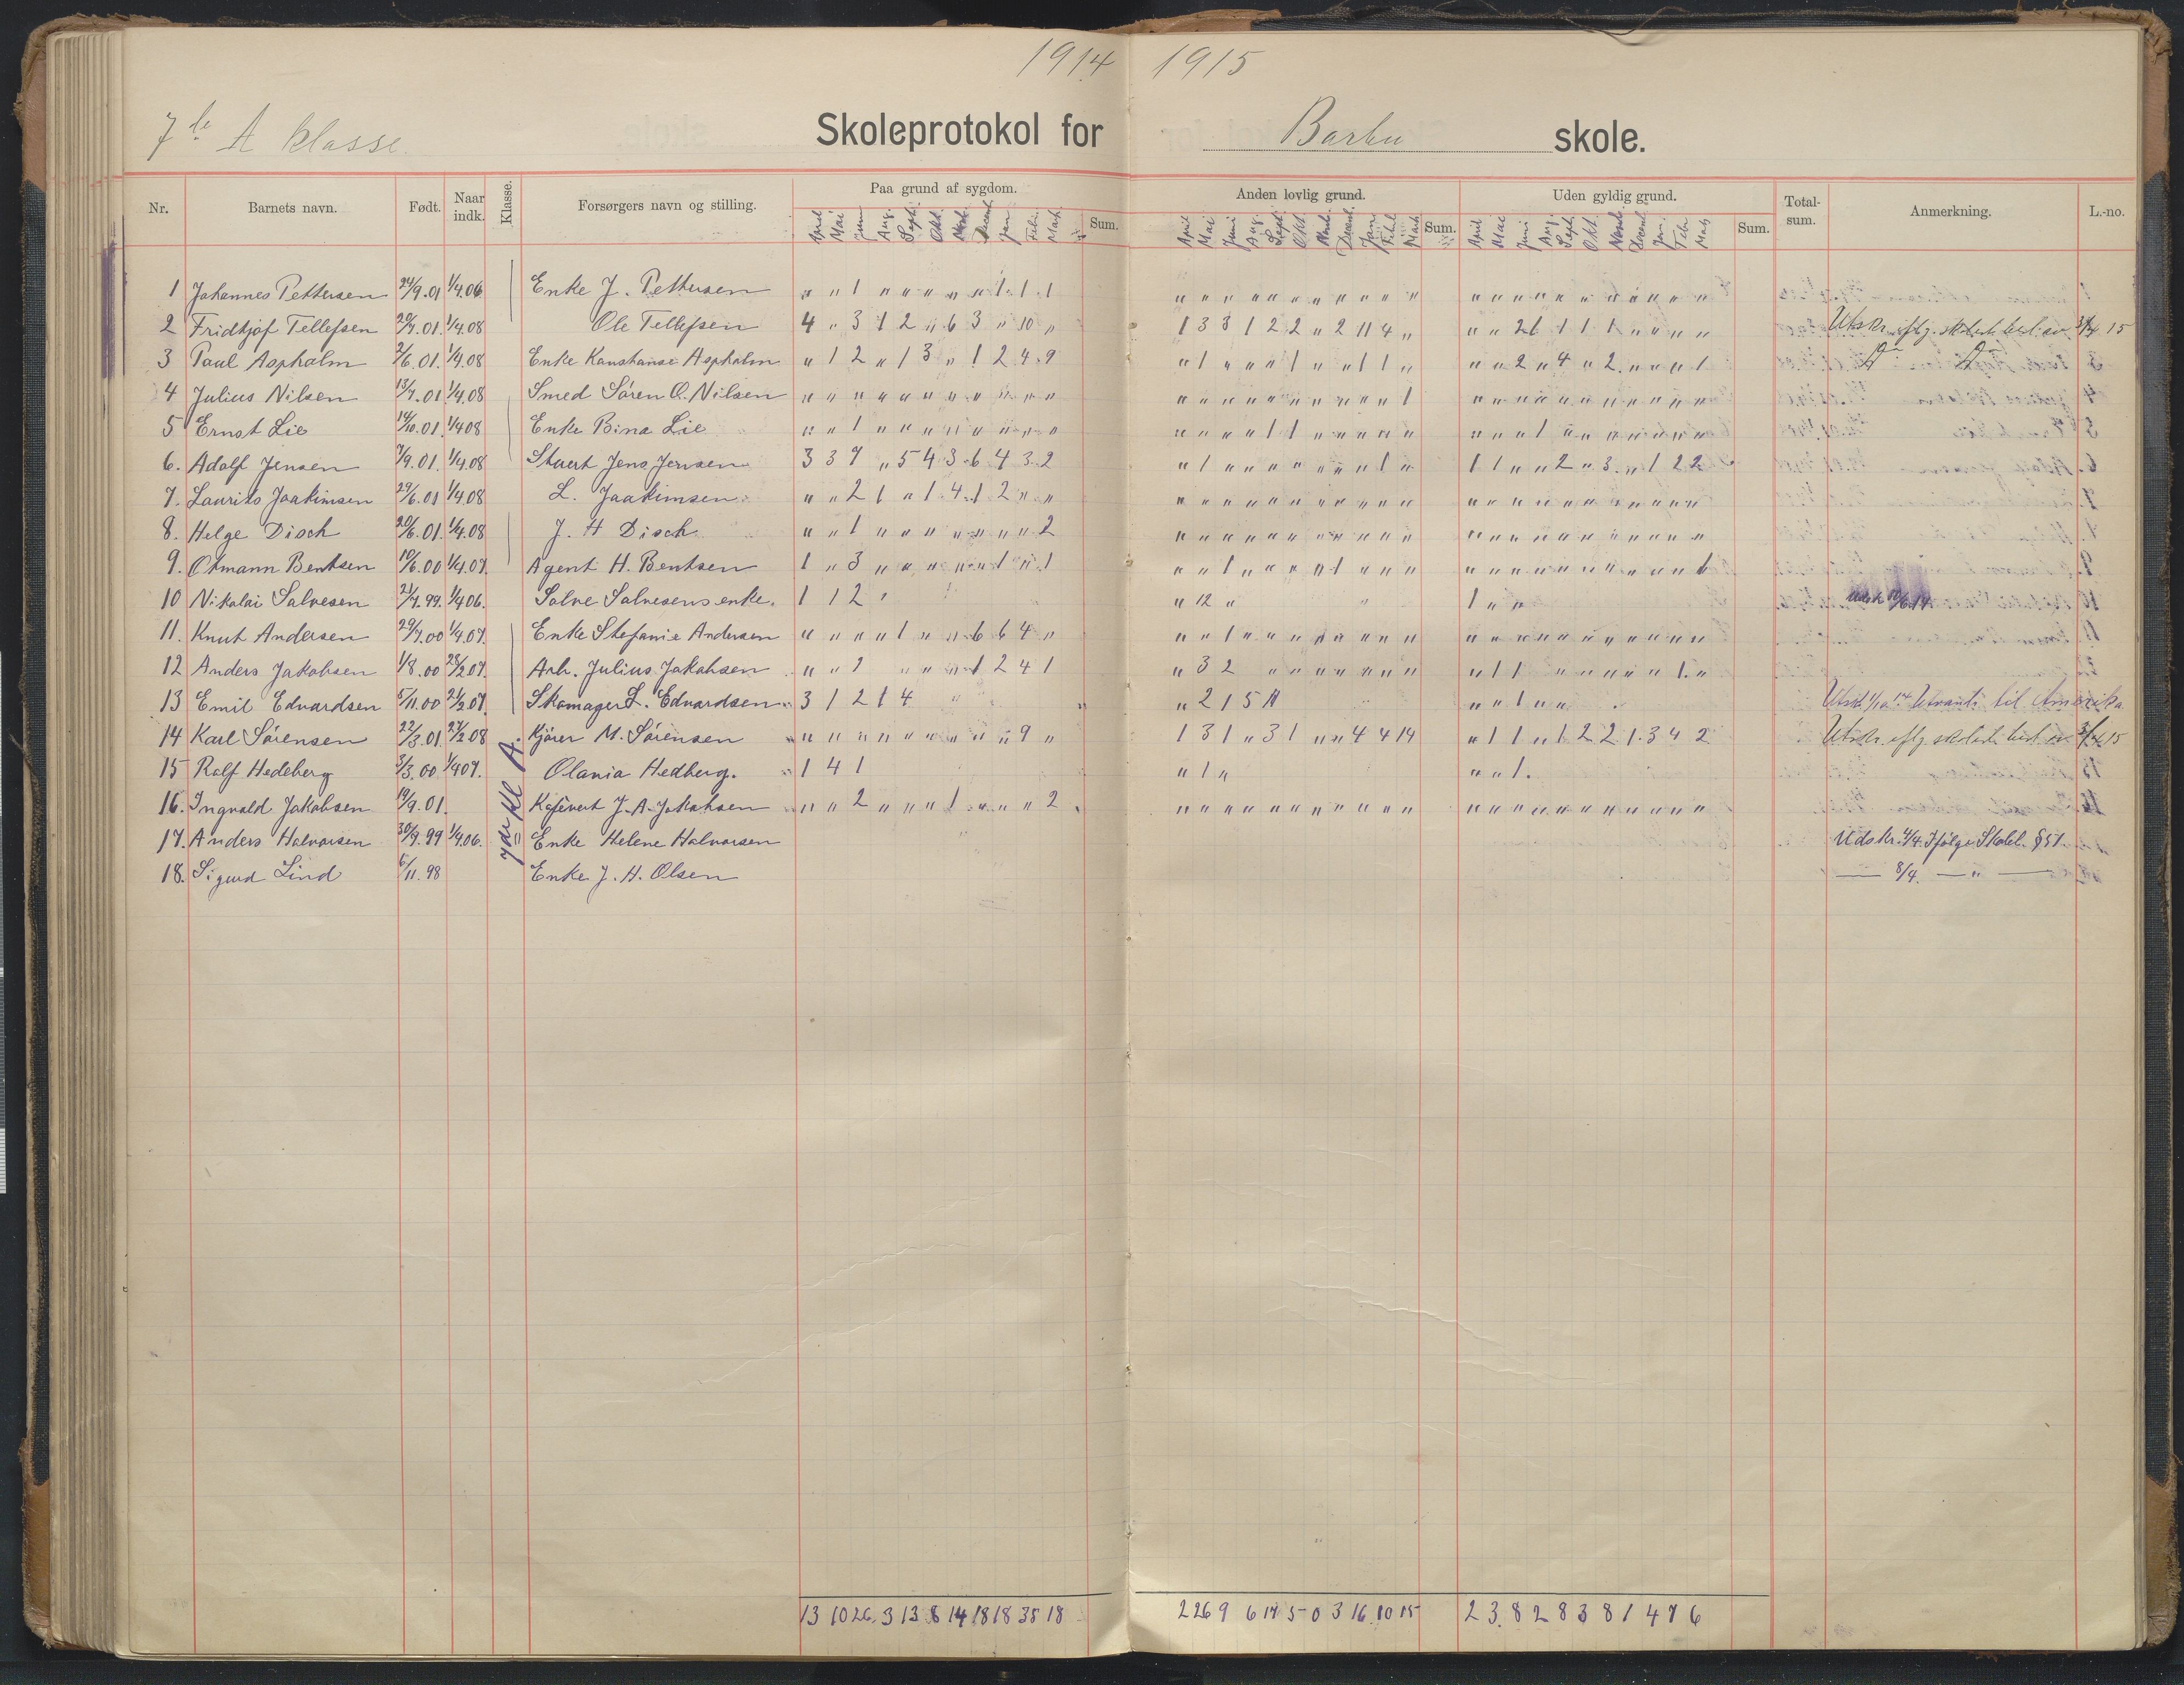 1914 1915
7de A klasse.
Skoleprotokol for Barbu skole.
Nr. Barnets navn. Født. Naar indk. Klasse. Forsørgers navn og stilling. Paa grund af sygdom. Sum. Anden lovlig grund. Sum. Uden gyldig grund. Sum. Total-sum. Anmerkning. L.-no.
April Mai Juni Aug. Sept. Okt. Novbr. Decemb. Jan. Feb. Marts April Mai Juni Aug. Sept. Okt. Novbr. Decemb. Jan. Feb. Marts April Mai Juni Aug. Sept. Okt. Novbr. Decemb. Jan. Feb. Marts
1 Johannes Pettersen 24/9.01 1/4.06 Enke J. Pettersen " " 1 " " " " " 1 1 1 " " " " " " " " " " " " " " " " " " " " " "
2 Fridtjof Tellefsen 01. 1/4.08 Ole Tellefsen 4 " 3 1 2 " 6 3 " 10 " 1 3 3 1 2 2 " 2 11 4 " " " 2 1 1 1 " " " " Utskr. iflg. skolest. besl. av 15
3 Paul Aspholm 2/6.01. 1/4.08 Enke Konstanse Aspholm " 1 2 " 1 3 " 1 2 4 9 " 1 " " " 1 " " 1 1 " " " 2 " 4 " 2 " " " 1
4 Julius Nilsen 13/7.01 1/4.08 Smed Søren O. Nilsen " " " " " " " " " " " " " " " " " " " " " 1 " " " " " " " " " " "
5 Ernst Lie 14/10.01 1/4 08 Enke Bina Lie " " 1 " " " " " " " " " " " " 1 1 " " " " " " " " 1 " " " " " " "
6. Adolf Jensen 7/9.01. 1/4.08 Stuert Jens Jensen 3 3 7 " 5 4 3 6 4 3 2 " 1 " " " " " " " 1 " 1 1 " " 2 " 3 " 1 2 2
7. Laurits Joakimsen 29/6.01 1/4.08 L. Joakimsen " " 2 1 " 1 4 1 2 " " " " " " " " " " " " " " " " " " " " " " " "
8. Helge Disch 20/6.01. 1/4.08 J. H Disch " " 1 " " " " " " " 2 " " " " " " " " " " " " " " " " " " " " " "
9. Otmann Bentsen 10/6.00 1/4.07. Agent H. Bentsen 1 " 3 " " " " " 1 " 1 " " 1 " " " " 1 " " " " " " " " " " " " " 1
10 Nikolai Salvesen 99. 1/4 06. Salve Salvesens enke. 1 1 2 " " 12 " 1 " " Udsk. 10/6.14
11. Knut Andersen 29/7.00 1/4.07. Enke Stefanie Andersen " " " " 1 " " 6 6 4 " " " 1 " " " " " " " " " " " " " " " " " " "
12 Anders Jakobsen 1/8.00 28/2 07. Arb. Julius Jakobsen " " 1 " " " " 1 2 4 1 " 3 2 " " " " " " " " " 1 1 " " " " " " 1 "
13 Emil Edvardsen 5/11.00 21/2 07. Skomager L. Edvardsen 3 1 2 1 4 " 2 1 5 11 " " 1 " " Utsk 1/10 14 Utvandr. til Amerika
14 Karl Sørensen 22/3.01. 27/2 08 Kjører M. Sørensen " " " " " " " " " 9 " 1 3 1 " 3 1 " " 4 4 14 " 1 1 " 1 2 2 1 3 4 2 Utskr. iflg. skolest. besl. av 15
15 Rolf Hedeberg 3/3.00 1/4 07. 7de Kl A. Olania Hedberg. 1 4 1 " 1 " " " 1.
16. Ingvald Jakobsen 19/9.01. J. A. Jakobsen " " 2 " " " 1 " " " 2 " " " " " " " " " " " " " " " " " " " " " "
17. Anders Halvorsen 30/9.99 1/4 06. Enke Helene Halvorsen Udskr. 4/4. Ifølge Skolel. § 51.
18. Sigurd Lind 6/11.98 Enke J. H. Olsen — 8/4. — " —
13 10 26. 3 13 8 14 18 18 35 18 2 26 9 6 14 5 0 3 16 10 15 2 3. 8 2 8 3 8 1 4 7 6